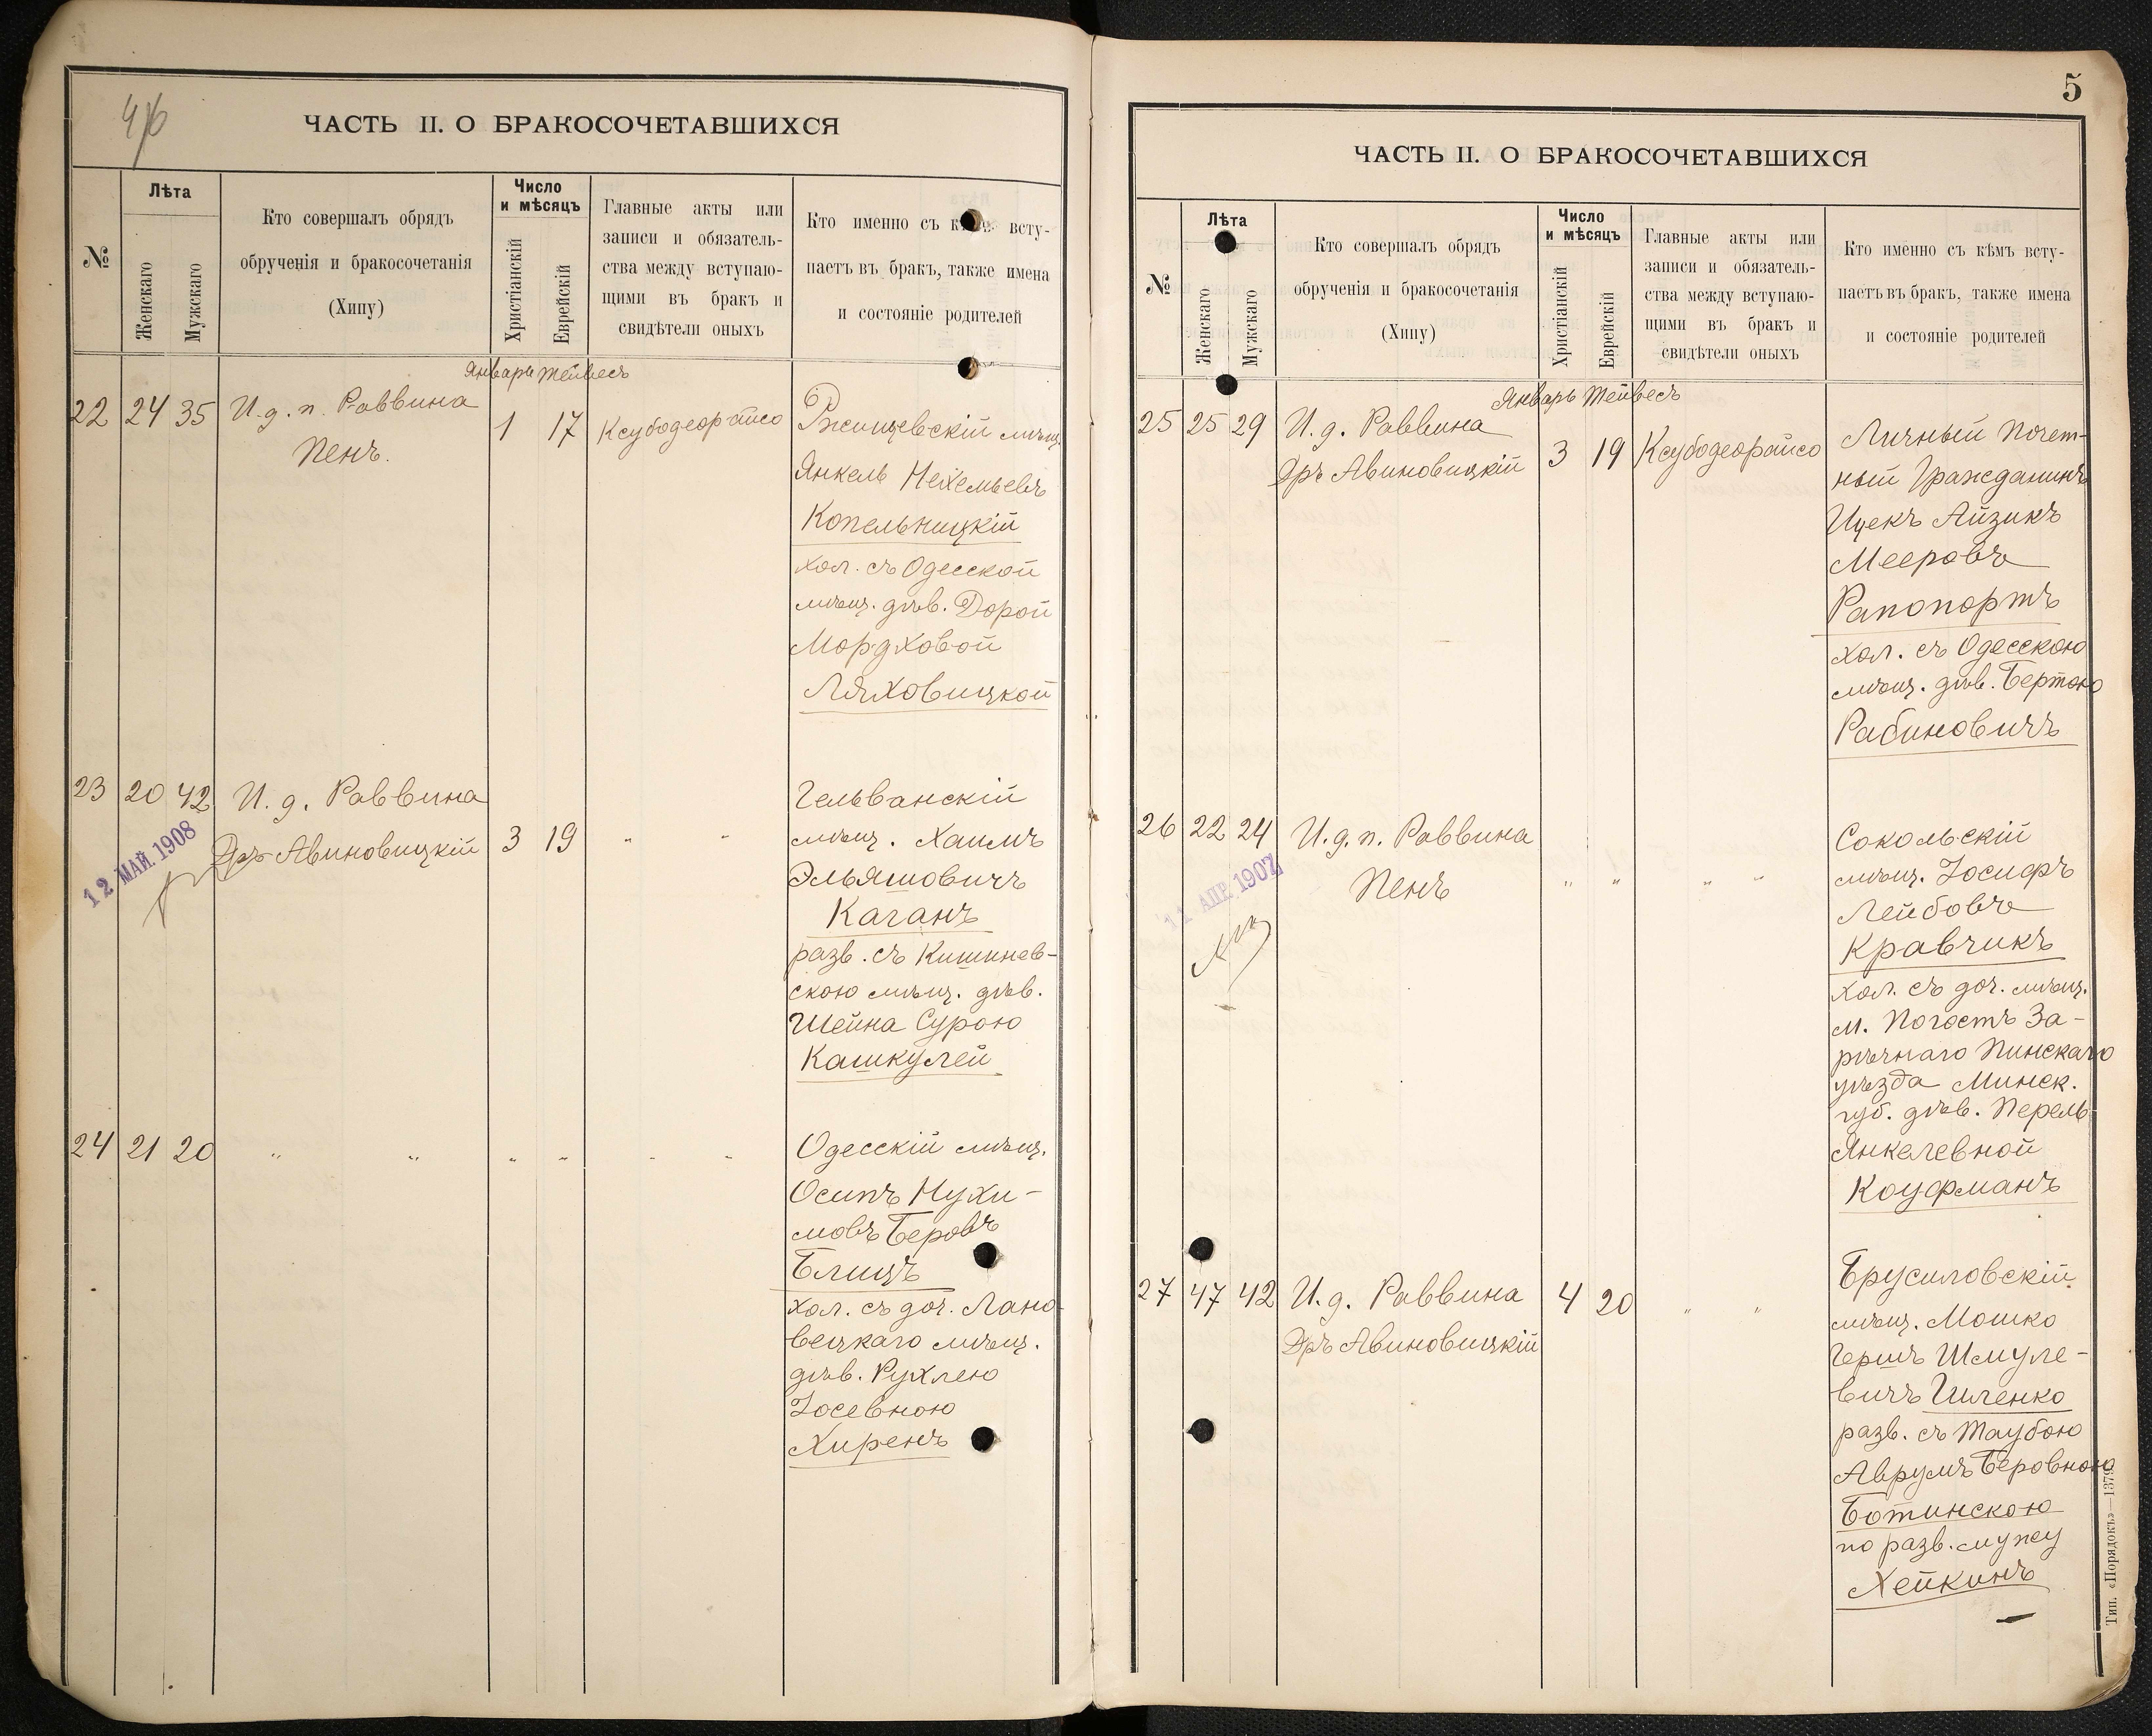 4/б
ЧАСТЬ II. О БРАКОСОЧЕТАВШИХСЯ
№
Лѣта
Женскаго
Мужскаго
Кто совершалъ обрядъ
обрученія и бракосочетанія
(Хипу)
Число
и мѣсяцъ
Христіанскій
Еврейскій
Главные акты или
записи и обязатель-
ства между вступаю-
щими въ бракъ и
свидѣтели оныхъ
Кто именно съ всту-
паетъ въ бракъ, также имена
и состояніе родителей
Январь Тейвесъ
22 24 35 И.д.п. Раввина
Пенъ.
1 17 Ксубодеорайсо
Ржищевскій мѣщ.
Янкель Нехемьевъ
Копельницкій
хол. съ Одесской
мѣщ. дѣв. Дорой
Мордховой
Ляховицкой
23 20 42 И. д. Раввина
Дръ Авиновицкій 3 19 " "
12 МАЙ 1908
Гельванскій
мѣщ. Хаимъ
Эльяшовичъ
Каганъ
разв. съ Кишинев-
скою мѣщ. дѣв.
Шейна Сурою
Кашкулей
24 21 20 " " " " " "
Одесскій мѣщ.
Осипъ Нухи-
мовъ Беровъ
Блицъ
хол. съ доч. Лано-
вецкаго мѣщ.
дѣв. Рухлею
Іосевною
Хиренъ
5
ЧАСТЬ II. О БРАКОСОЧЕТАВШИХСЯ
№
Лѣта
Женскаго
Мужскаго
Кто совершалъ обрядъ
обрученія и бракосочетанія
(Хипу)
Число
и мѣсяцъ
Христіанскій
Еврейскій
Главные акты или
записи и обязатель-
ства между вступаю-
щими въ бракъ и
свидѣтели оныхъ
Кто именно съ кѣмъ всту-
паетъ въ бракъ, также имена
и состояніе родителей
Январь Тейвесъ
25 25 29 И.д. Раввина
Дръ Авиновицкій 3 19 Ксубодеорайсо
Личный Почет-
ный Гражданинъ
Ицекъ Айзикъ
Мееровъ
Рапопортъ
хол. съ Одесскою
мѣщ. дѣв. Бертою
Рабиновичъ
26 22 24 И.д.п. Раввина
Пенъ " " " "
11 АПР. 1907
Сокольскій
мѣщ. Іосифъ
Лейбовъ
Кравчикъ
хол. съ доч. мѣщ.
м. Погостъ За-
рѣчнаго Пинскаго
уѣзда Минск.
губ. дѣв. Перель
Янкелевной
Коуфманъ
27 47 42 И.д. Раввина
Дръ Авиновицкій
4 20 " "
Брусиловскій
мѣщ. Мошко
Гершъ Шмуле-
вичъ Гиленко
разв. съ Таубою
Аврумъ Беровною
Ботинскою
по разв. мужу
Хейкинъ
Тип. «Порядокъ»—1379.